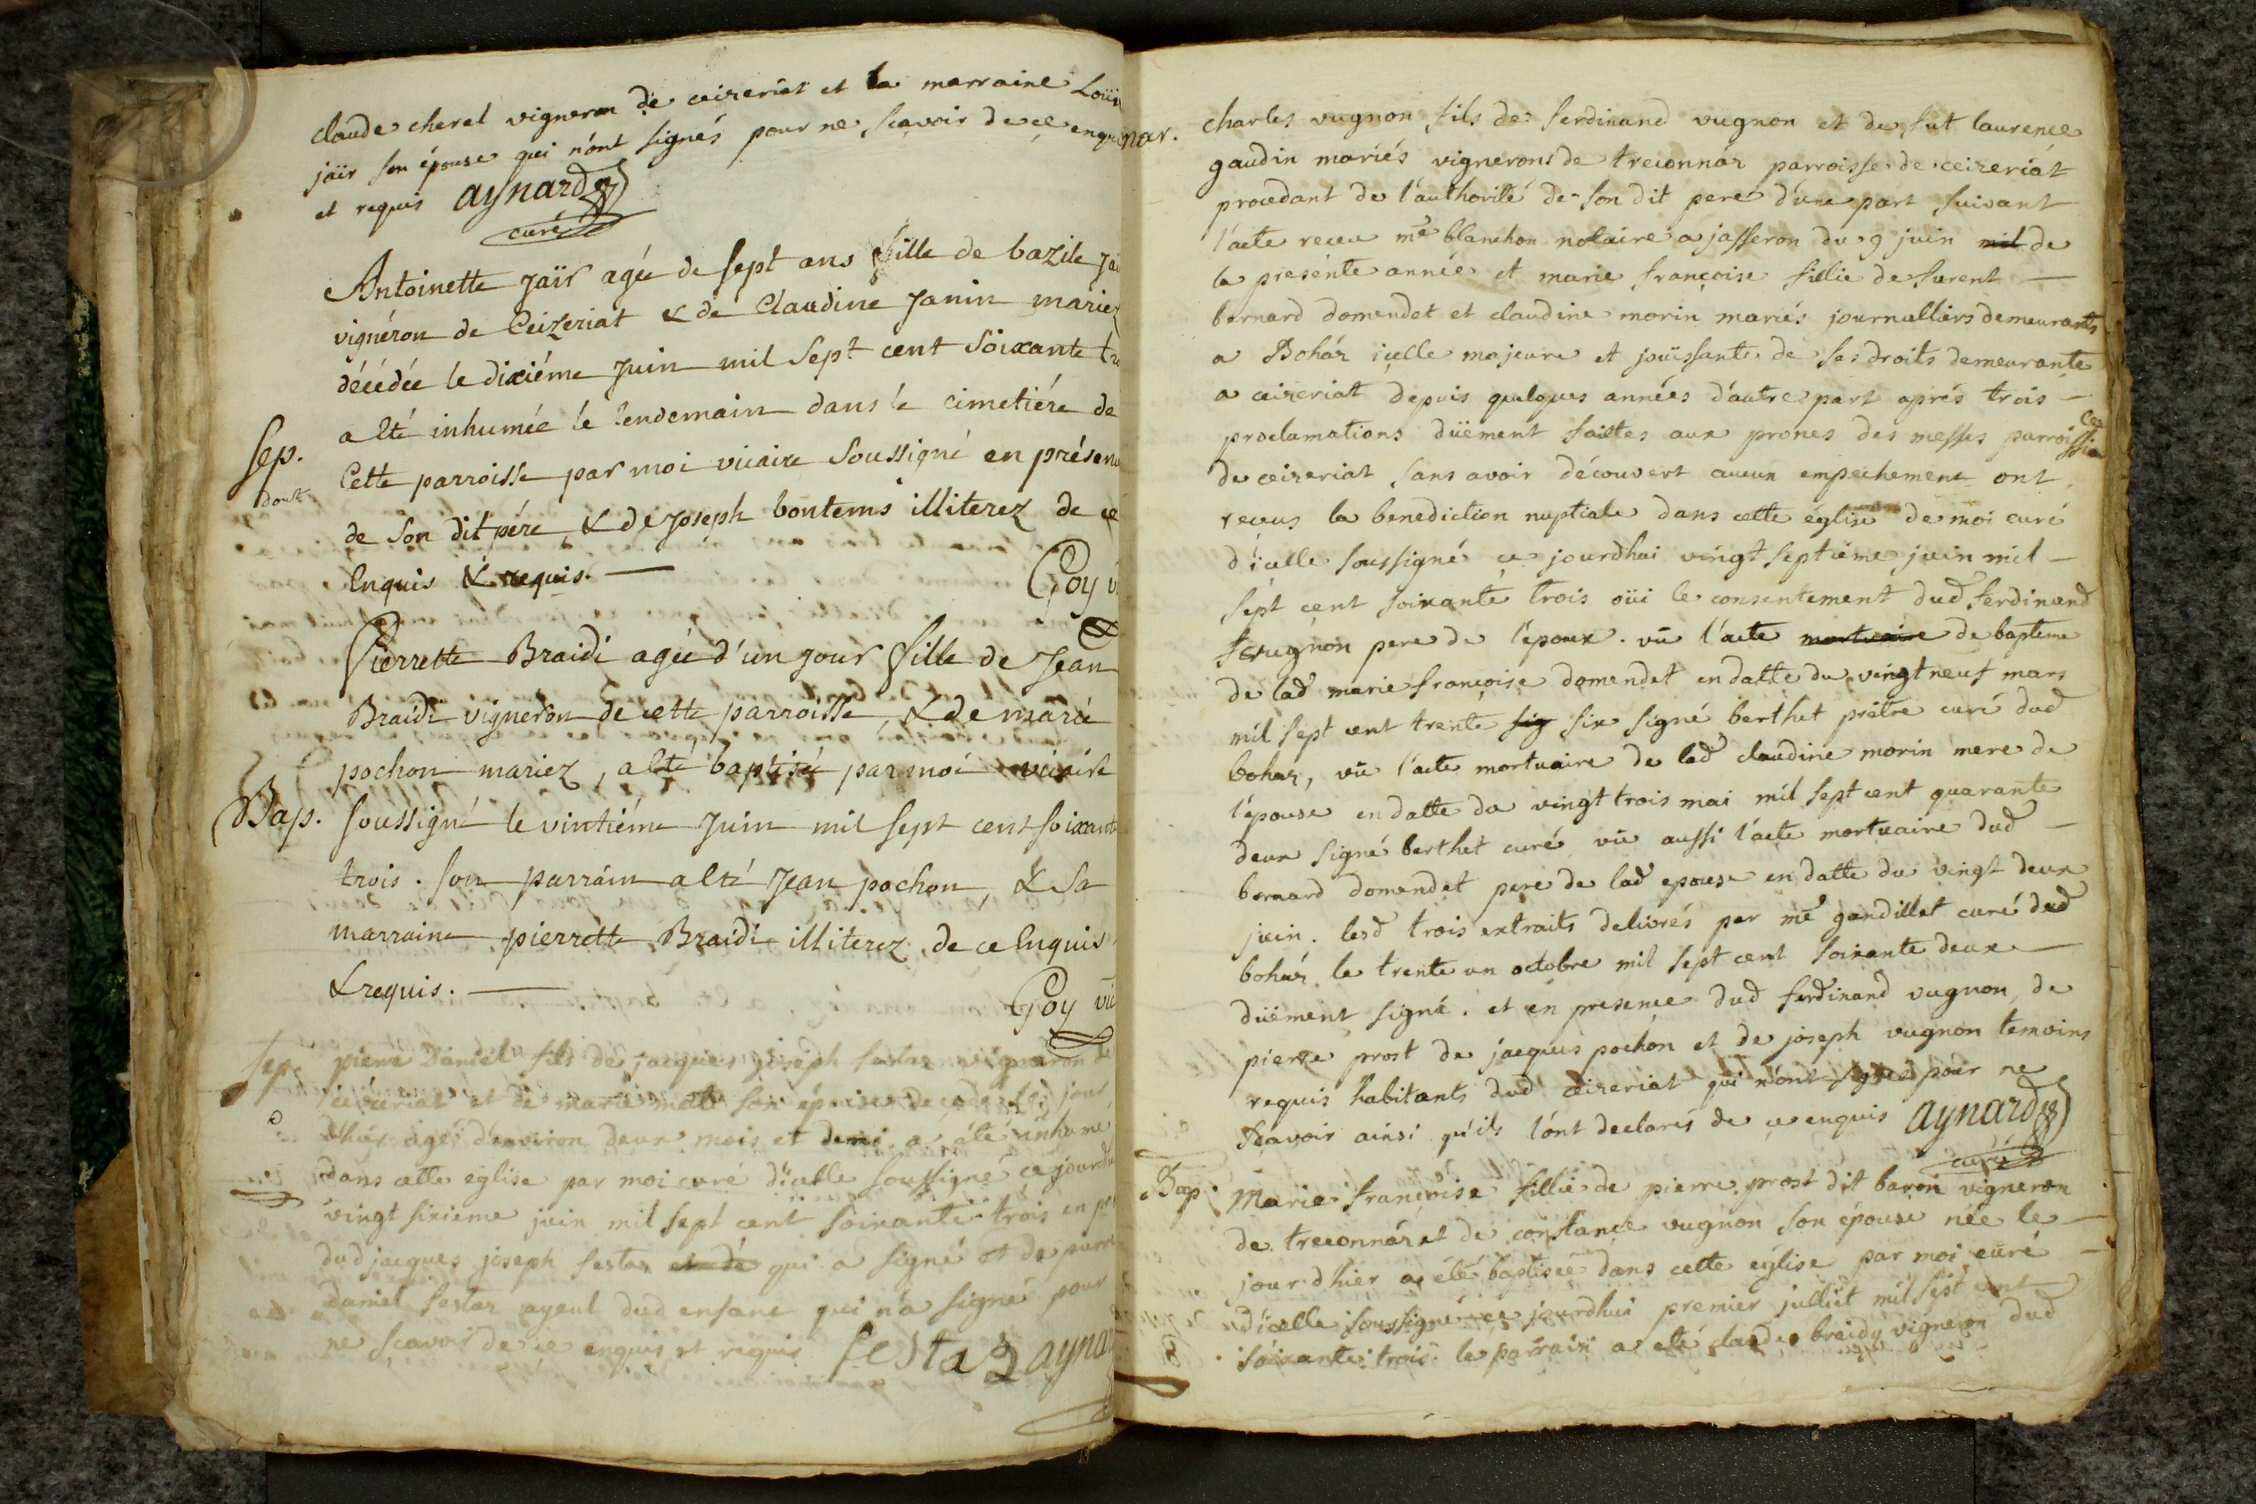 claude cherel vigneron de ceizeriat et la marraine Loüi
jaïr son épouse qui n'ónt signés pour ne sçavoir de ce enqui
et requis aynard
curé
Antoinette Jaïr agée de sept ans fille de bazile Jaï
vignéron de Ceizeriat & de Claudine Janin mariez
décédée le dixiéme Juin mil sept cent soixante tro
a été inhumée le lendemain dans le cimetiére de
Sep.
Cette parroisse par moi vicaire soussigné en présen
de son dit pére & de Joseph bontems illiterez de ce
Enquis & requis.
Goy vi
Pierrette Braidi agée d'un jour fille de Jean
Braidi vigneron de cette parroisse, & de marie
pochon mariez, a été baptisée par moi vicaire
Bap. soussigné le vintiéme Juin mil sept cent soixante
trois. son parrain a été Jean pochon, & sa
marraine pierrette Braidi illiterez de ce Enquis
& requis.
Goy vic
Sep. pierre Daniel fils de jacques joseph festas vigneron de
ceizeriat et de marie son épouse decedé le jour
d'hier agé d'environ deux mois et demi a été inhumé
dans cette église par moi curé d'icelle soussigné ce jourdh
vingt sixieme juin mil sept cent soixante trois en pr
dud jacques joseph festas et de qui a signé et de
daniel festas ayeul dud enfant qui n'a signé pour
ne sçavoir de ce enquis et requis festas aynar
mar.
charles vugnon fils de ferdinand vugnon et de fut laurence
gaudin mariés vignerons de treconnáz parroisse de ceizeriát
procedant de l'authorité de son dit pere d'une part suivant
l'acte receu me blanchon notaire a jasseron du 9 juin mil de
la presénte année et marie françoise fillie de furent
bernard domendet et claudine morin mariés journalliers demeurants
a Boház icelle majeure et joüissante de ses droits demeurante
a ceizeriat depuis quelques années d'autre part aprés trois
proclamations düement faittes aux prones des messes parroissia
les
de ceizeriat sans avoir découvert aucun empechement ont
receus la benediction nuptiale dans cette église de moi curé
d'icelle soussigné ce jourdhui vingt septiéme juin mil
sept cent soixante trois oüi le consentement dud ferdinand
vugnon pere de l'époux. vû l'acte mortuaire de bapteme
de lad marie françoise domendet en datte du vingt neuf mars
mil sept cent trente sig six signé berthet prêtre curé dud
bohaz, vû l'acte mortuaire de lad claudine morin mere de
l'épouse en datte du vingt trois mai mil sept cent quarante
deux signé berthet curé vû aussi l'acte mortuaire dud
bernard domendet pere de lad epouse en datte du vingt deux
juin. lesd trois extraits delivrés par me gandillet curé dud
boház le trente un octobre mil sept cent soixante deux
düement signé. et en presence dud ferdinand vugnon, de
pierre prost de jacques pochón et de joseph vugnon temoins
requis habitants dud ceizeriat qui n'ont signes pour ne
sçavoir ainsi qu'ils l'ónt declarés de ce enquis aynard
curé
Bap. Marie françoise fillie de pierre prost dit baron vigneron
de treconnáz et de constance vugnon son épouse née le
jour d'hier a été baptisée dans cette église par moi curé
d'icelle soussigné ce jourdhui premier julliet mil sept cent
soixante trois. le parrain a eté claude braidy vigneron dud